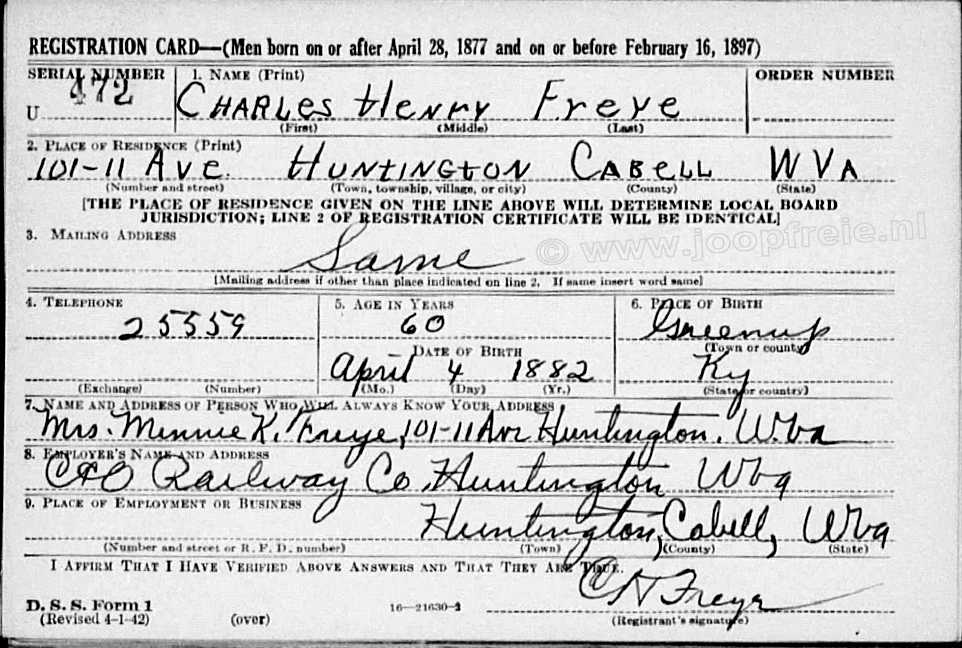 REGISTRATION CARD—(Men born on or after April 28, 1877 and on or before February 16, 1897)
SERIAL NUMBER 1. NAME (Print) ORDER NUMBER
U 472 CHARLES HENRY FREYE
(First) (Middle) (Last)
2. PLACE OF RESIDENCE (Print)
101-11 AVE. HUNTINGTON CABELL W VA
(Number and street) (Town, township, village, or city) (County) (State)
[THE PLACE OF RESIDENCE GIVEN ON THE LINE ABOVE WILL DETERMINE LOCAL BOARD
JURISDICTION; LINE 2 OF REGISTRATION CERTIFICATE WILL BE IDENTICAL]
3. MAILING ADDRESS
Same
© www.joopfreie.nl
[Mailing address if other than place indicated on line 2. If same insert word same]
4. TELEPHONE 5. AGE IN YEARS 6. PLACE OF BIRTH
25559 60 Greenup
DATE OF BIRTH (Town or county)
April 4 1882 Ky
(Exchange) (Number) (Mo.) (Day) (Yr.) (State or country)
7. NAME AND ADDRESS OF PERSON WHO WILL ALWAYS KNOW YOUR ADDRESS
Mrs. Minnie K. Freye, 101-11 Ave Huntington. W.Va
8. EMPLOYER'S NAME AND ADDRESS
C&O Railway Co. Huntington W Va
9. PLACE OF EMPLOYMENT OR BUSINESS
Huntington, Cabell, W Va
(Number and street or R. F. D. number) (Town) (County) (State)
I AFFIRM THAT I HAVE VERIFIED ABOVE ANSWERS AND THAT THEY ARE TRUE.
C H Freye
D. S. S. Form 1
(Revised 4-1-42) (over) 16—21630-2 (Registrant's signature)